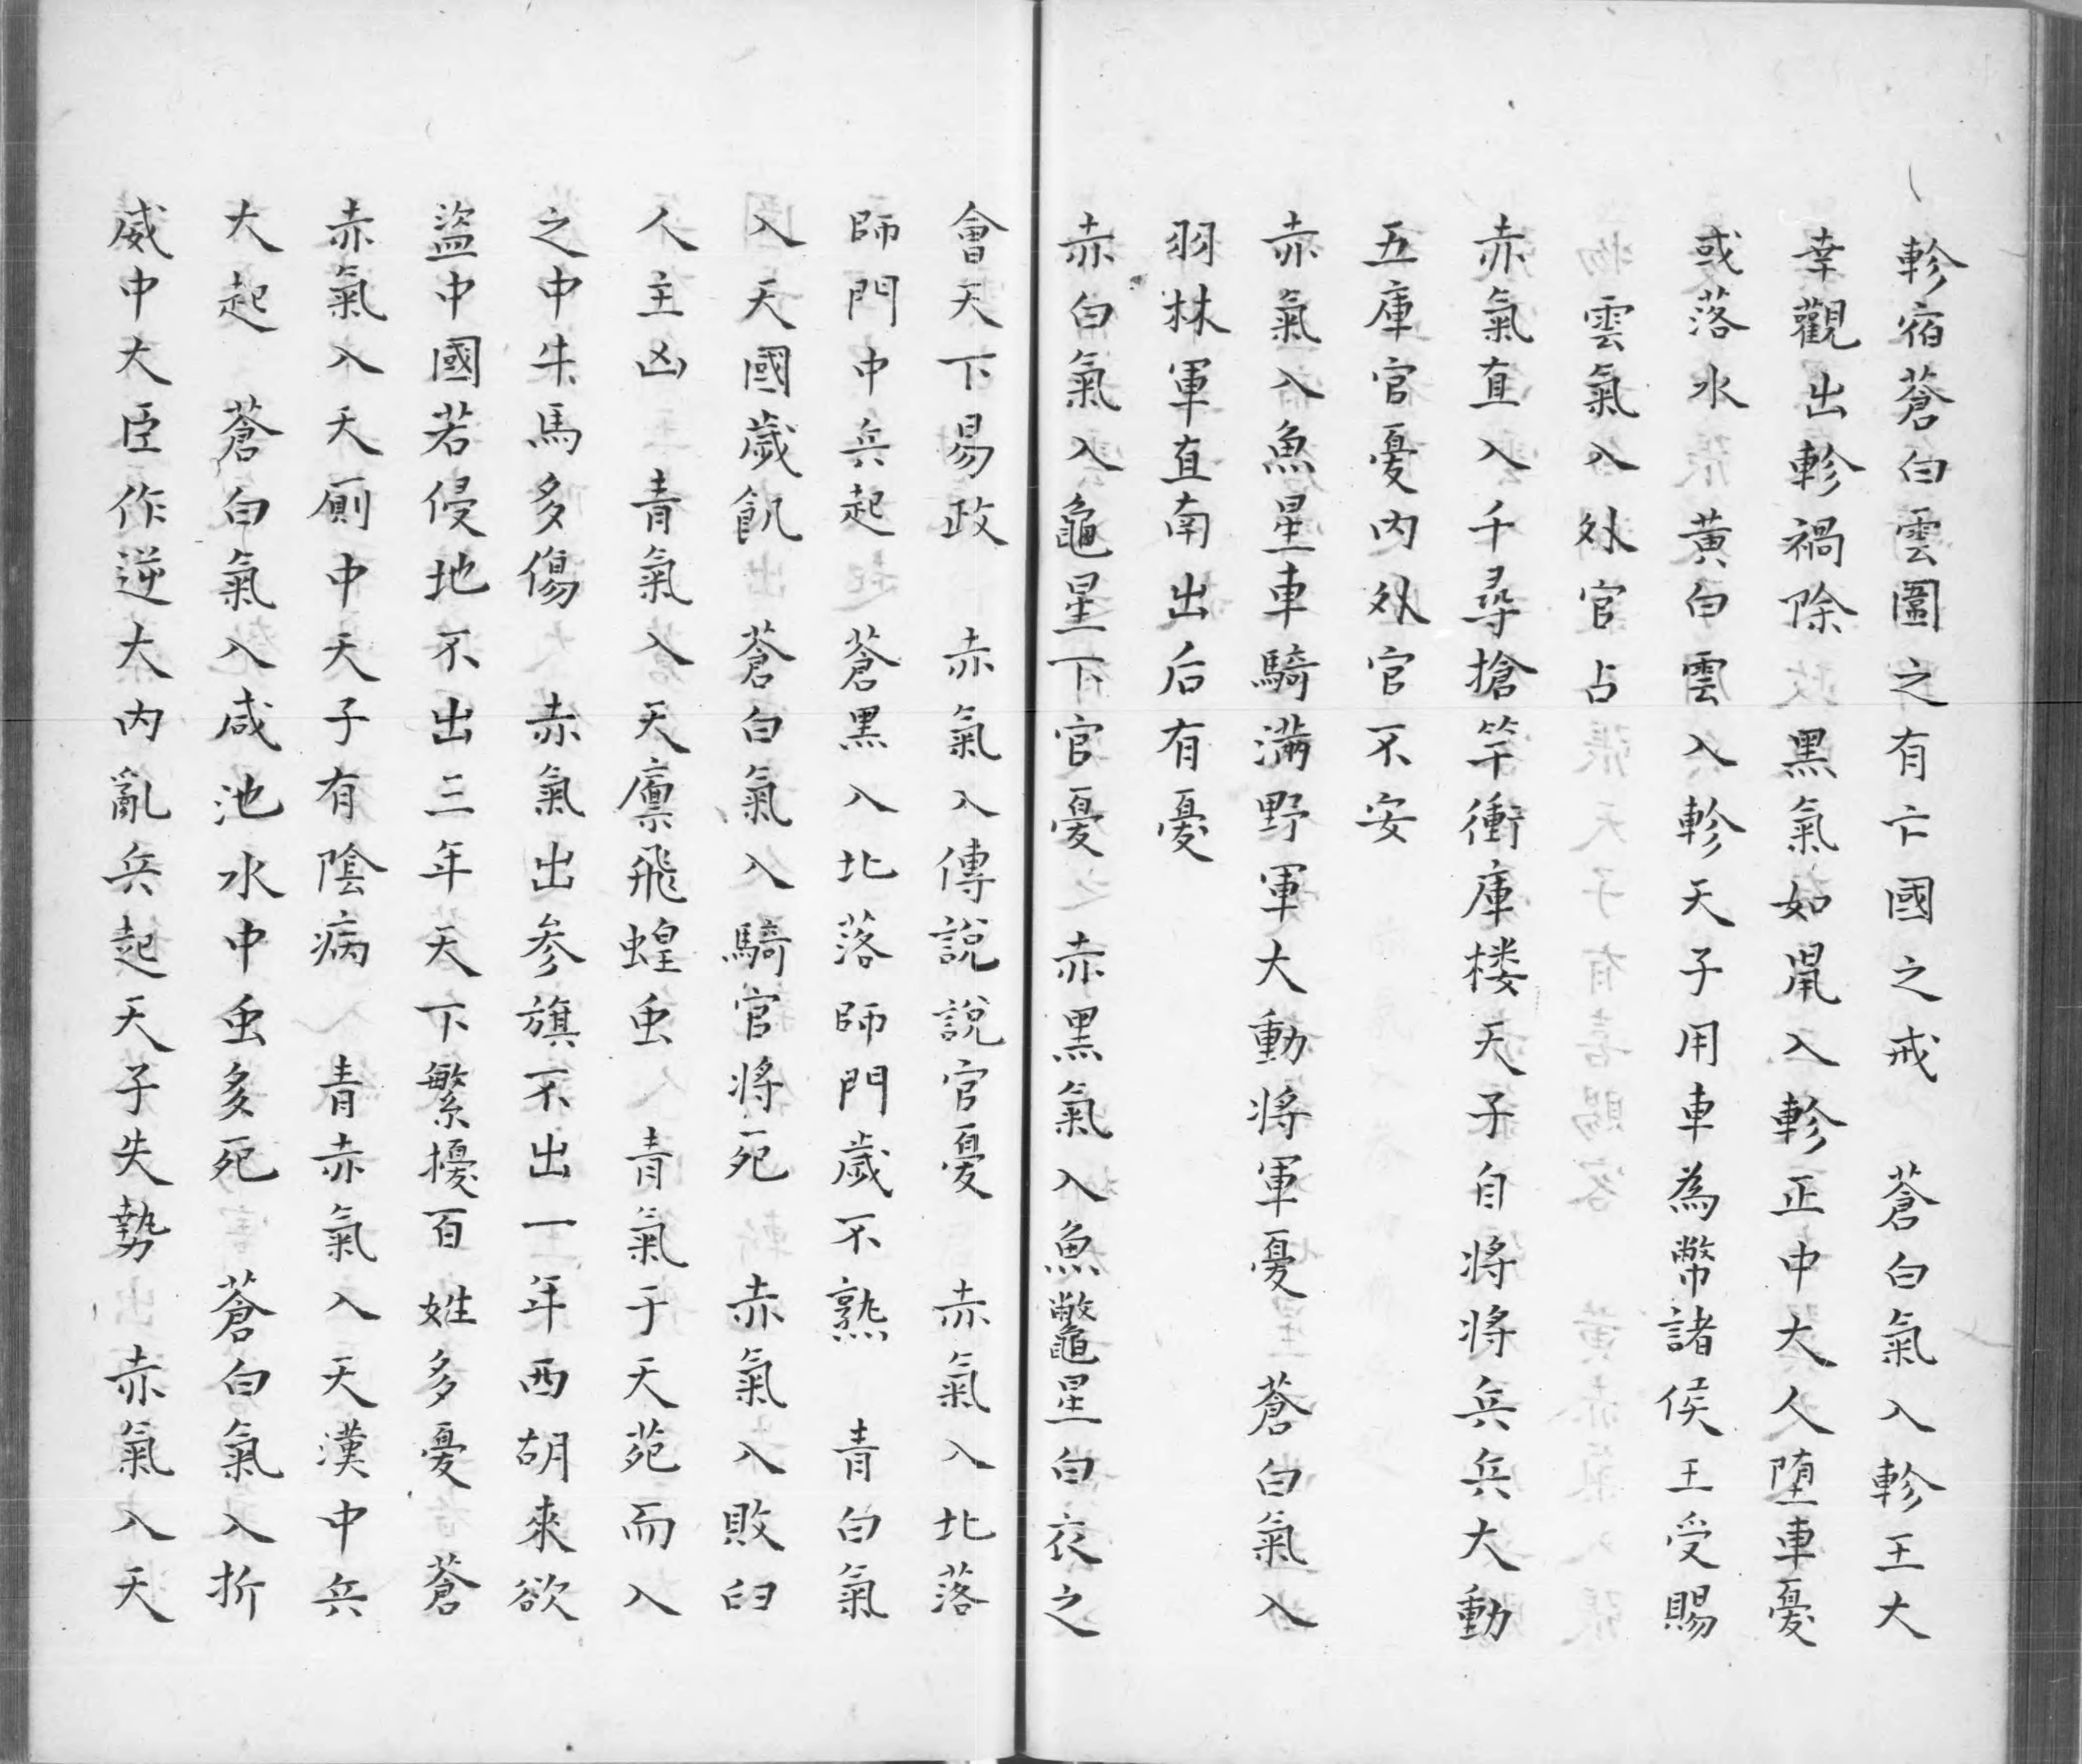 軫宿蒼白雲圍之有亡國之戒　蒼白氣入軫王大
幸觀出軫禍除　黑氣如鼠入軫正中大人墮車憂
或落水　黃白雲入軫天子用車為幣諸侯王受賜
雲氣入外官占
赤氣直入千尋搶竿衝庫楼天子自將將兵兵大動
五庫官憂内外官不安
赤氣入魚星車騎滿野軍大動將軍憂　蒼白氣入
羽林軍直南出后有憂
赤白氣入龜星下官憂之　赤黑氣入魚鼈星白衣之
會天下易政　赤氣入傳說說官憂　赤氣入北落
師門中兵起　蒼黑入北落師門歲不熟　青白氣
入天國歲飢　蒼白氣入騎官將死　赤氣入敗臼
人主凶　青氣入天廩飛蝗虫　青氣于天苑而入
之中牛馬多傷　赤氣出参旗不出一年西胡來欲
盜中國若侵地不出三年天下繁擾百姓多憂　蒼
赤氣入天廁中天子有陰病　青赤氣入天漢中兵
大起　蒼白氣入咸池水中虫多死　蒼白氣入折
威中大臣作逆大内亂兵起天子失勢　赤氣入天